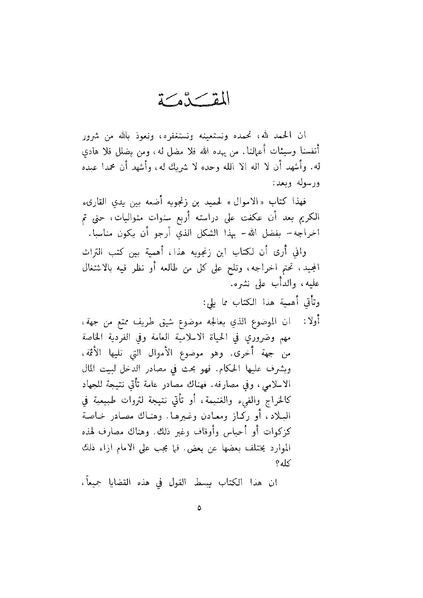 المقـدّمـة
ان الحمد لله، نحمده ونستعينه ونستغفره، ونعوذ بالله من شرور
أنفسنا وسيئات أعمالنا. من يهده الله فلا مضل له، ومن يضلل فلا هادي
له. وأشهد أن لا اله الا الله وحده لا شريك له، وأشهد أن محمدا عبده
ورسوله وبعد:
فهذا كتاب «الاموال» لحميد بن زنجويه أضعه بين يدي القارىء
الكريم بعد أن عكفت على دراسته أربع سنوات متواليات، حتى تم
اخراجه - بفضل الله - بهذا الشكل الذي أرجو أن يكون مناسبا.
واني أرى أن لكتاب ابن زنجويه هذا، أهمية بين كتب التراث
المجيد، تحتم اخراجه، وتلح على كل من طالعه أو نظر فيه بالاشتغال
عليه، والدأب على نشره.
وتأتي أهمية هذا الكتاب مما يلي:
أولا: ان الموضوع الذي يعالجه موضوع شيق طريف ممتع من جهة،
مهم وضروري في الحياة الاسلامية العامة وفي الفردية الخاصة
من جهة أخرى. وهو موضوع الأموال التي تليها الأئمة،
ويشرف عليها الحكام. فهو بحث في مصادر الدخل لبيت المال
الاسلامي، وفي مصارفه. فهناك مصادر عامة تأتي نتيجة للجهاد
كالخراج والفيء والغنيمة، أو تأتي نتيجة لثروات طبيعية في
البلاد، أو ركاز ومعادن وغيرها. وهناك مصادر خاصة
كزكوات أو أحباس وأوقاف وغير ذلك. وهناك مصارف لهذه
الموارد يختلف بعضها عن بعض. فما يجب على الامام ازاء ذلك
كله؟
ان هذا الكتاب يبسط القول في هذه القضايا جميعاً،
٥